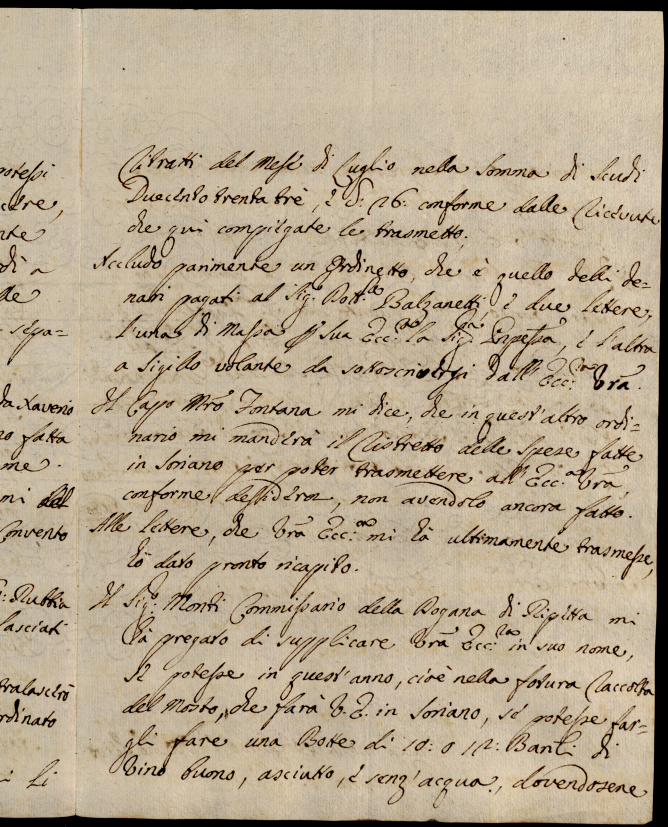 potessi
cere,
nte
rdi a
lle
sepa=
da Xaverio
no fatta
me.
mi del
Convento
Rubbia
lasciati
tralascerò
rdinato
li
Estratti del Mese di Luglio nella Somma di Scudi
Ducento trenta trè, è b: 76: conforme dalle Ricevute
che qui compiegate le trasmetto.
Accludo parimente un Ordinetto, che è quello delli de=
nari pagati al Sig: Dott:re Balzanetti, è due lettere,
l'una di Massa p Sua Ecc:za la Sig:ra Pnpessa, è l'altra
a sigillo volante da sottoscriversi dall'Ecc:za Vra.
Il Capo Mro Fontana mi dice, che in quest'altro ordi=
nario mi manderà il Ristretto delle spese fatte
in Soriano per poter trasmettere all'Ecc:za Vra
conforme desidera, non avendolo ancora fatto.
Alle lettere, che Vra Ecc:za mi hà ultimamente trasmesse,
hò dato pronto ricapito.
Il Sig:re Monti Commissario della Dogana di Ripetta mi
hà pregato di supplicare Vra Ecc:za in suo nome,
se potesse in quest'anno, cioè nella fotura Raccolta
del Mosto, che farà V.E. in Soriano, se potesse far=
gli fare una Botte di 10: o 12: Barili di
Vino buono, asciutto, è senz'acqua, dovendosene